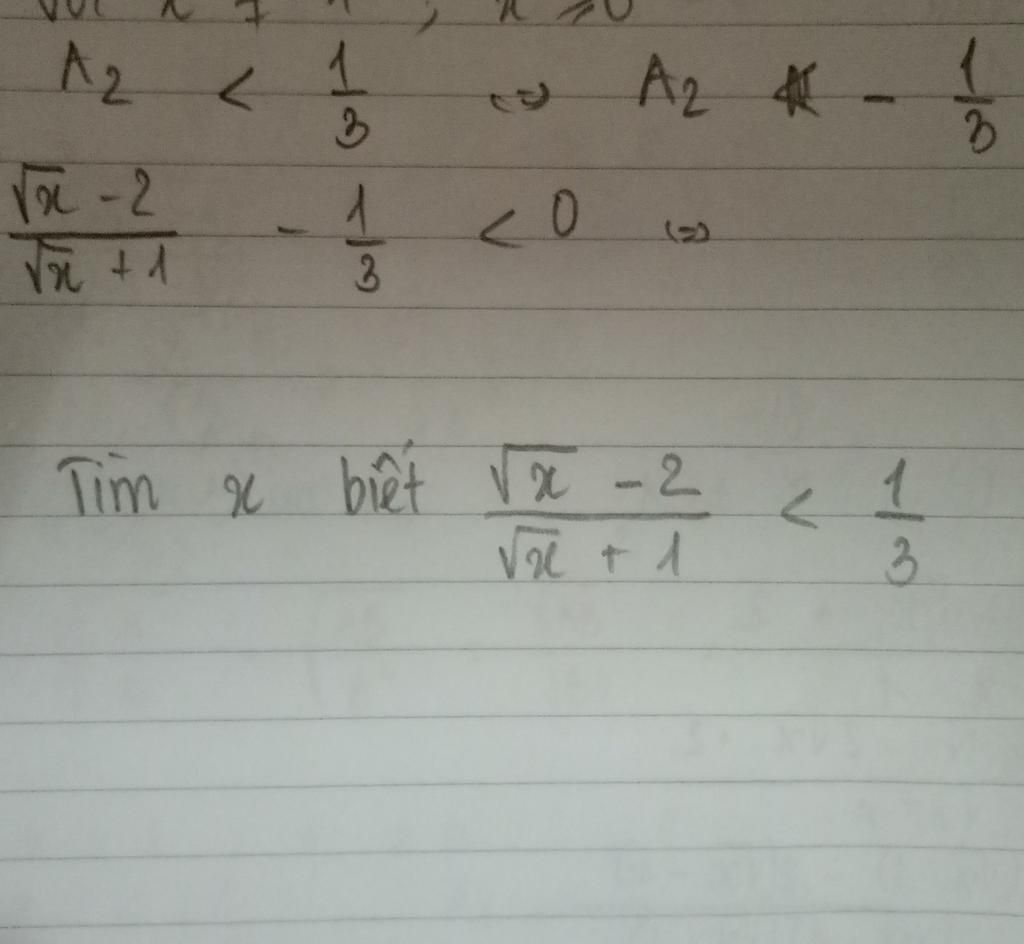 A₂ < 1/3 ⇔ A₂ - 1/3
(√x - 2)/(√x + 1) - 1/3 < 0 ⇔
Tìm x biết (√x - 2)/(√x + 1) < 1/3